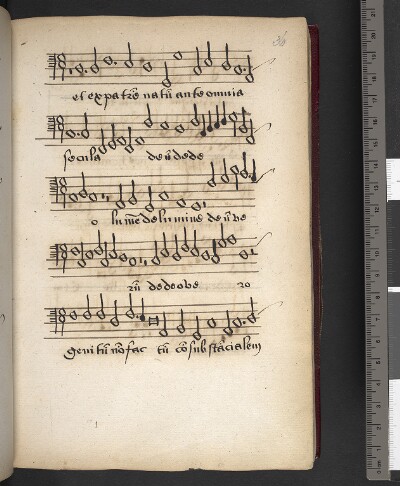 36
et ex patrē natū ante omnia
secula deū de de
o lumē de lumine deū ve
rū de deo ve ro
genitū nō fac tū cō sub stācialem